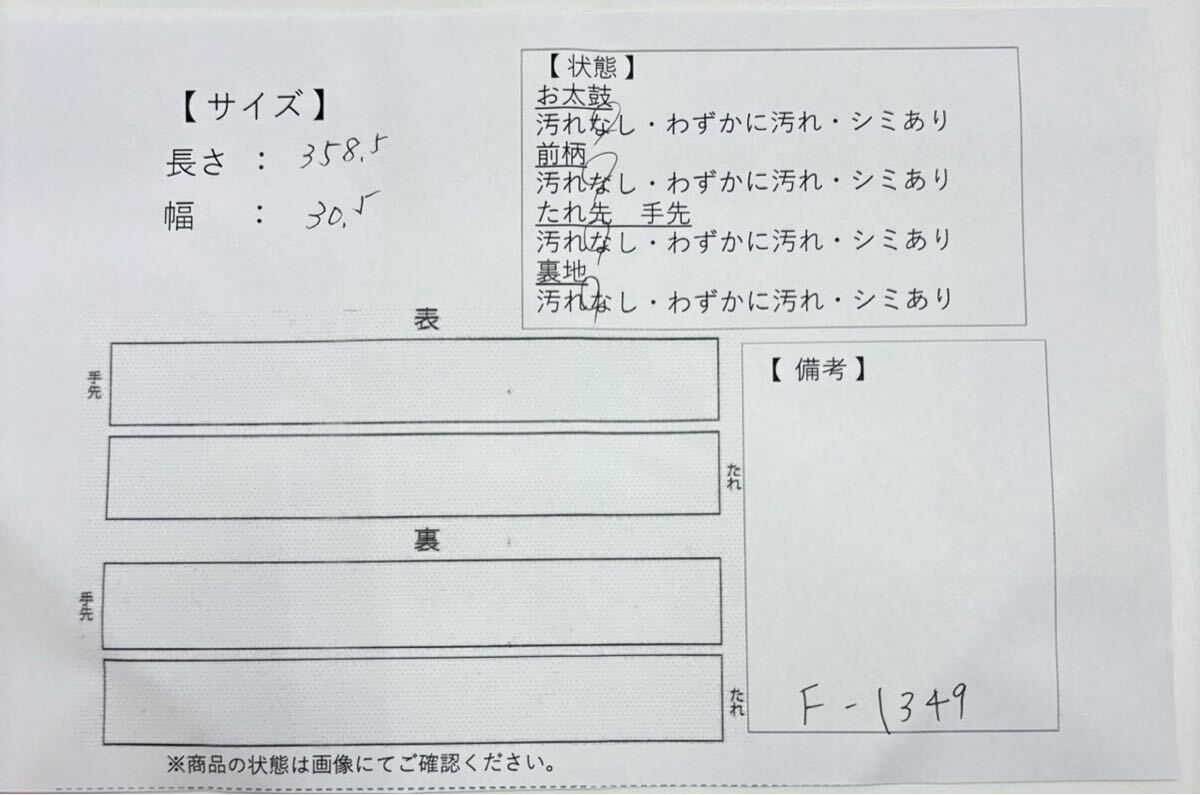 【サイズ】
長さ ： 358.5
幅 ： 30.5
【状態】
お太鼓
汚れなし・わずかに汚れ・シミあり
前柄
汚れなし・わずかに汚れ・シミあり
たれ先 手先
汚れなし・わずかに汚れ・シミあり
裏地
汚れなし・わずかに汚れ・シミあり
表
手先
たれ
裏
手先
たれ
【備考】
F-1349
※商品の状態は画像にてご確認ください。